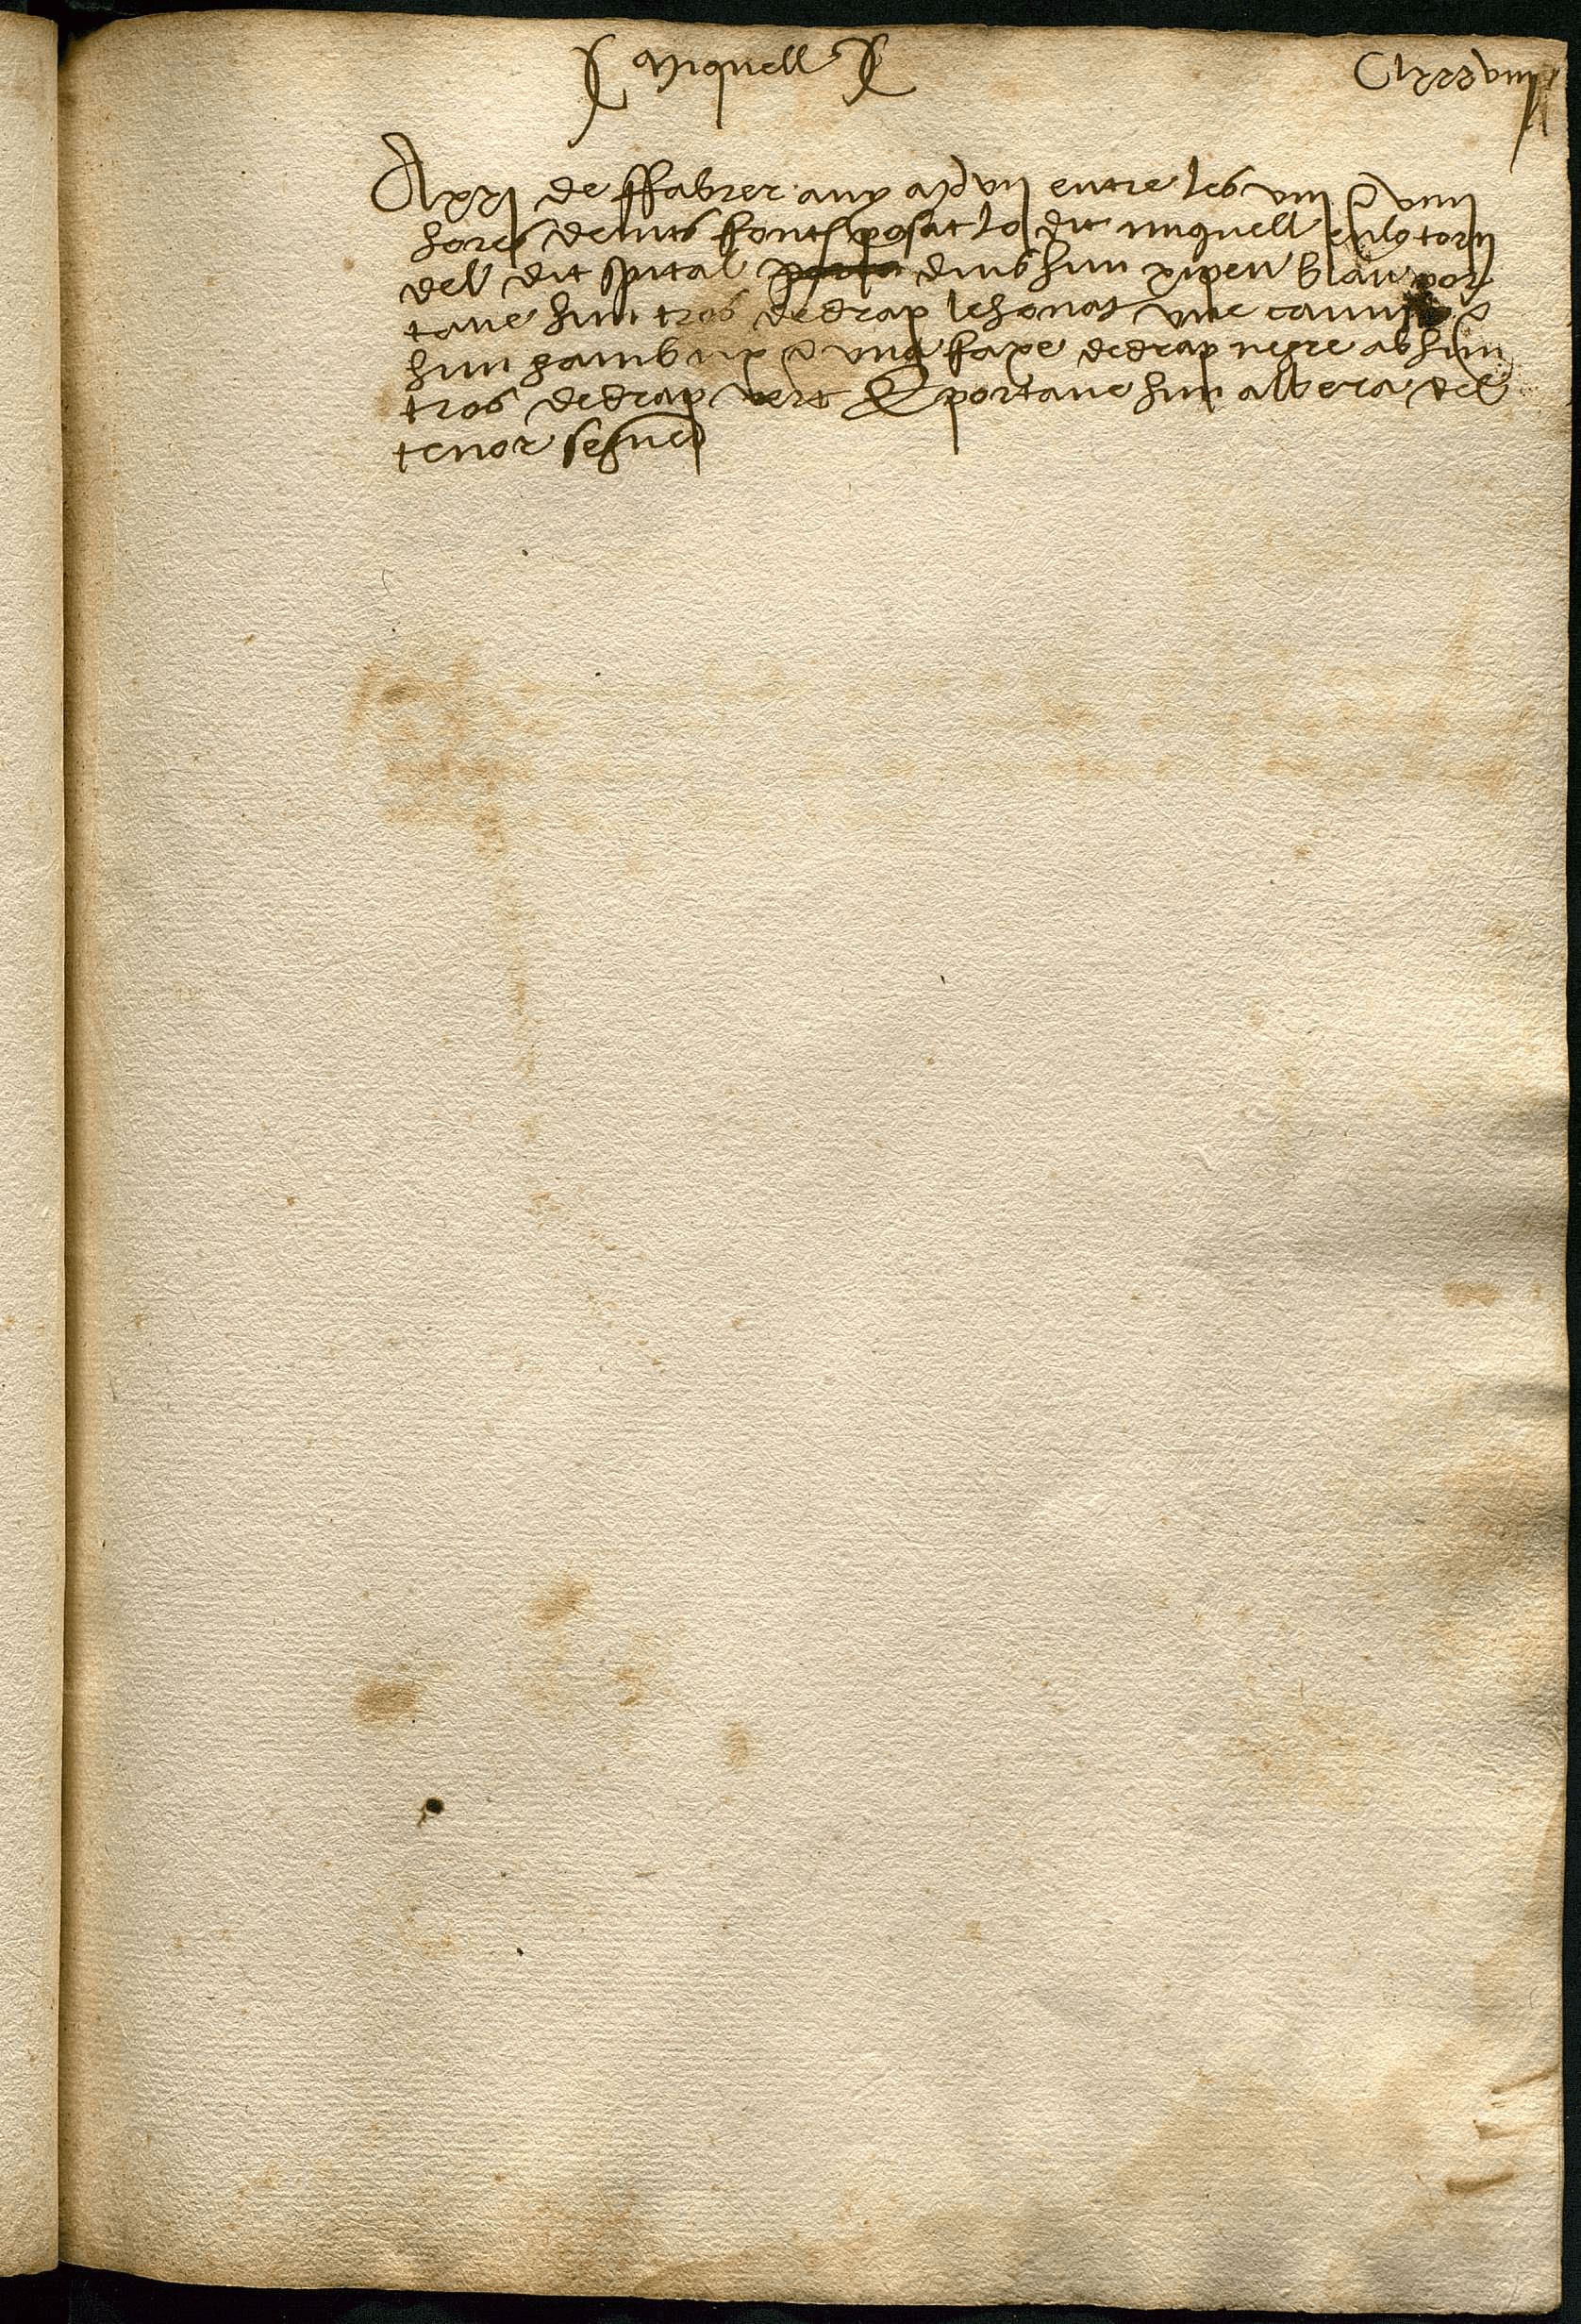 Miquell
Clxxxviiij
A xxj de ffabrer any mdvij entre les viij e viiij
hores de nits fonch posat lo dit miquell en lo torn
del dit spital dins hun gipen blau por
tave hun tros de drap lehonat une camise e
hun gambux e una faxe de drap negre ab hun
tros de drap vert E portave hun albera del
tenor seguen